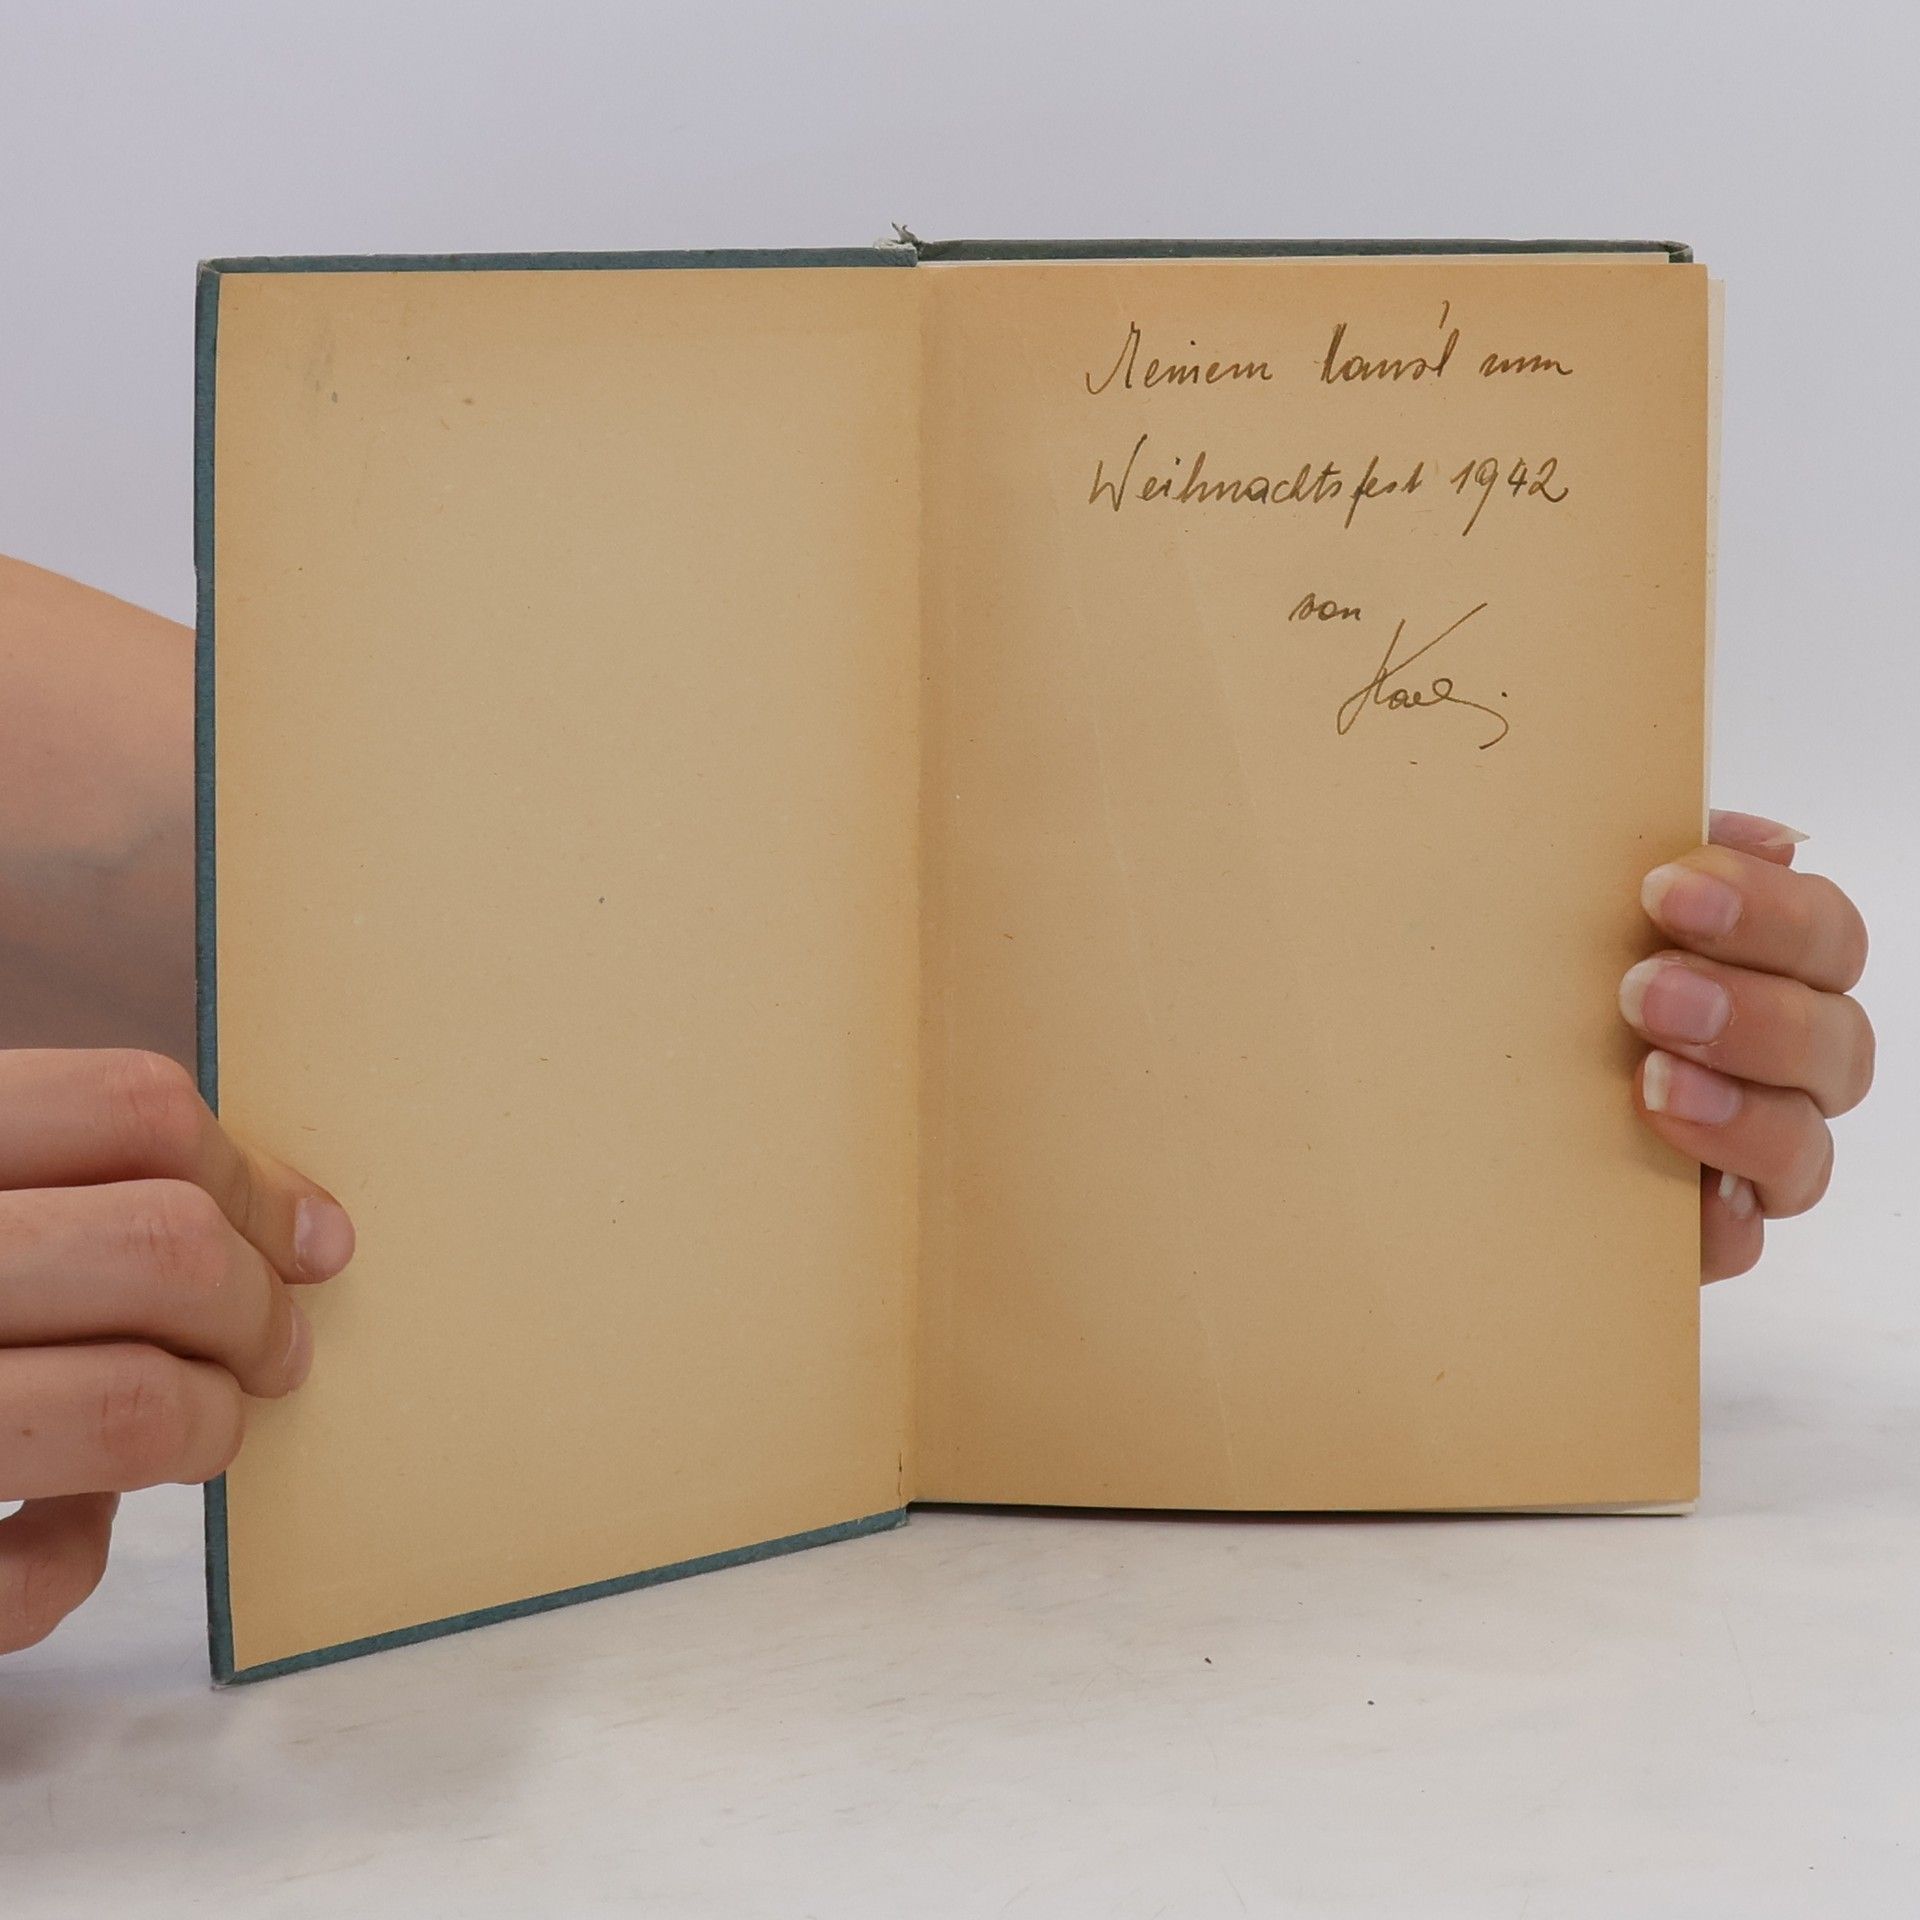 Meinem Hansl zum
Weihnachtsfest 1942
von
Karl.